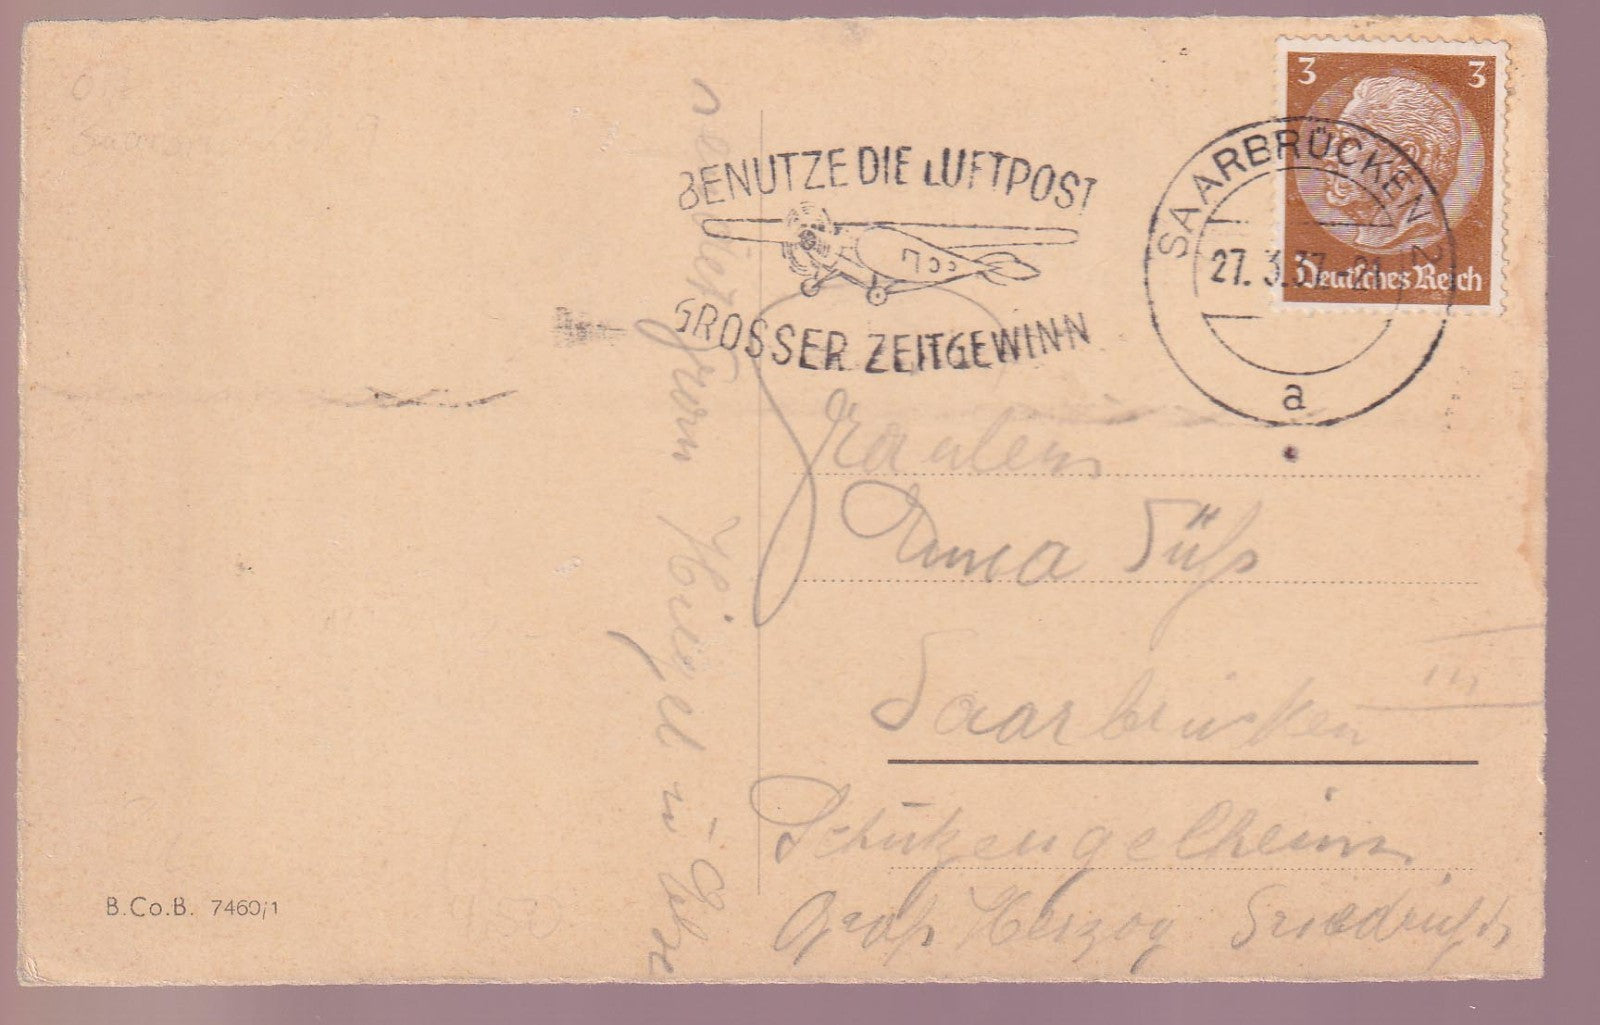 BENUTZE DIE LUFTPOST
GROSSER ZEITGEWINN
3 3
Deutsches Reich
SAARBRÜCKEN 2
27. 3.37-21
a
Fräulein
Anna Süß
Saarbrücken III
Schutzengelheim
Groß Herzog Friedrichstr
B.Co.B. 7460/1